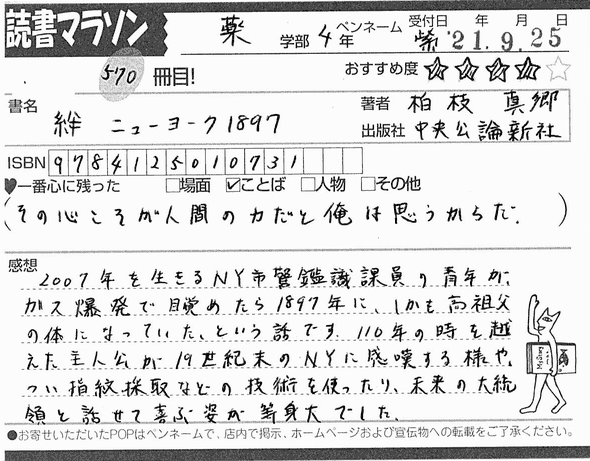 読書マラソン
薬 学部 4年 ペンネーム 紫 受付日 '21年 9月 25日
570 冊目!
おすすめ度 ★★★★☆
書名 絆 ニューヨーク1897
著者 柏枝 真郷
出版社 中央公論新社
ISBN 9784125010731
♥一番心に残った □場面 ☑ことば □人物 □その他
(その心こそが人間の力だと俺は思うからだ.)
感想
2007年を生きるNY市警鑑識課員の青年が、
ガス爆発で目覚めたら1897年に、しかも高祖父
の体になっていた、という話です. 110年の時を越
えた主人公が19世紀末のNYに感嘆する様や、
つい指紋採取などの技術を使ったり、未来の大統
領と話せて喜ぶ姿が等身大でした.
●お寄せいただいたPOPはペンネームで、店内で掲示、ホームページおよび宣伝物への転載をご了承ください。